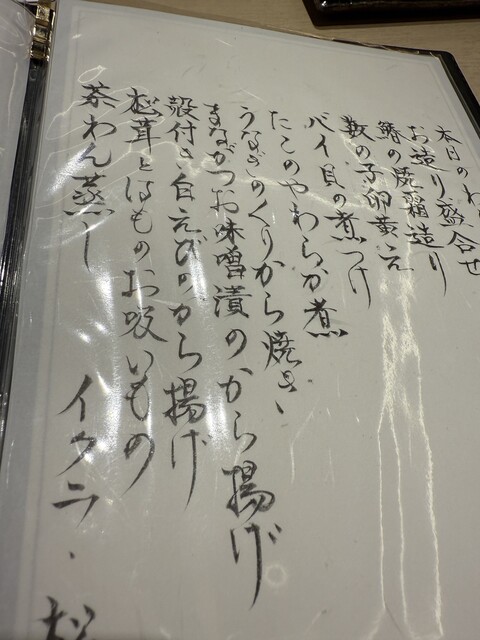 本日のわ
お造り盛合せ
鰆の焼霜造り
数の子卵黄和え
バイ貝の煮つけ
たこのやわらか煮
うなぎのくりから焼き
まながつお味噌漬のから揚げ
殻付き白えびのから揚げ
松茸とはものお吸いもの
茶わん蒸し イクラ・松